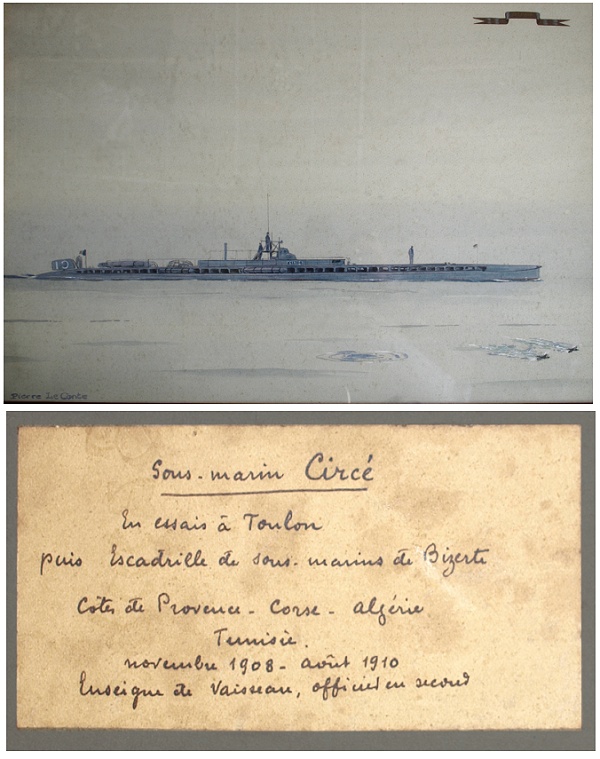 Pierre Le Conte
Sous-marin Circé
En essais à Toulon
puis Escadrille de sous-marins de Bizerte
Côtes de Provence - Corse - Algérie
Tunisie.
novembre 1908 - août 1910
Enseigne de Vaisseau, officier en second